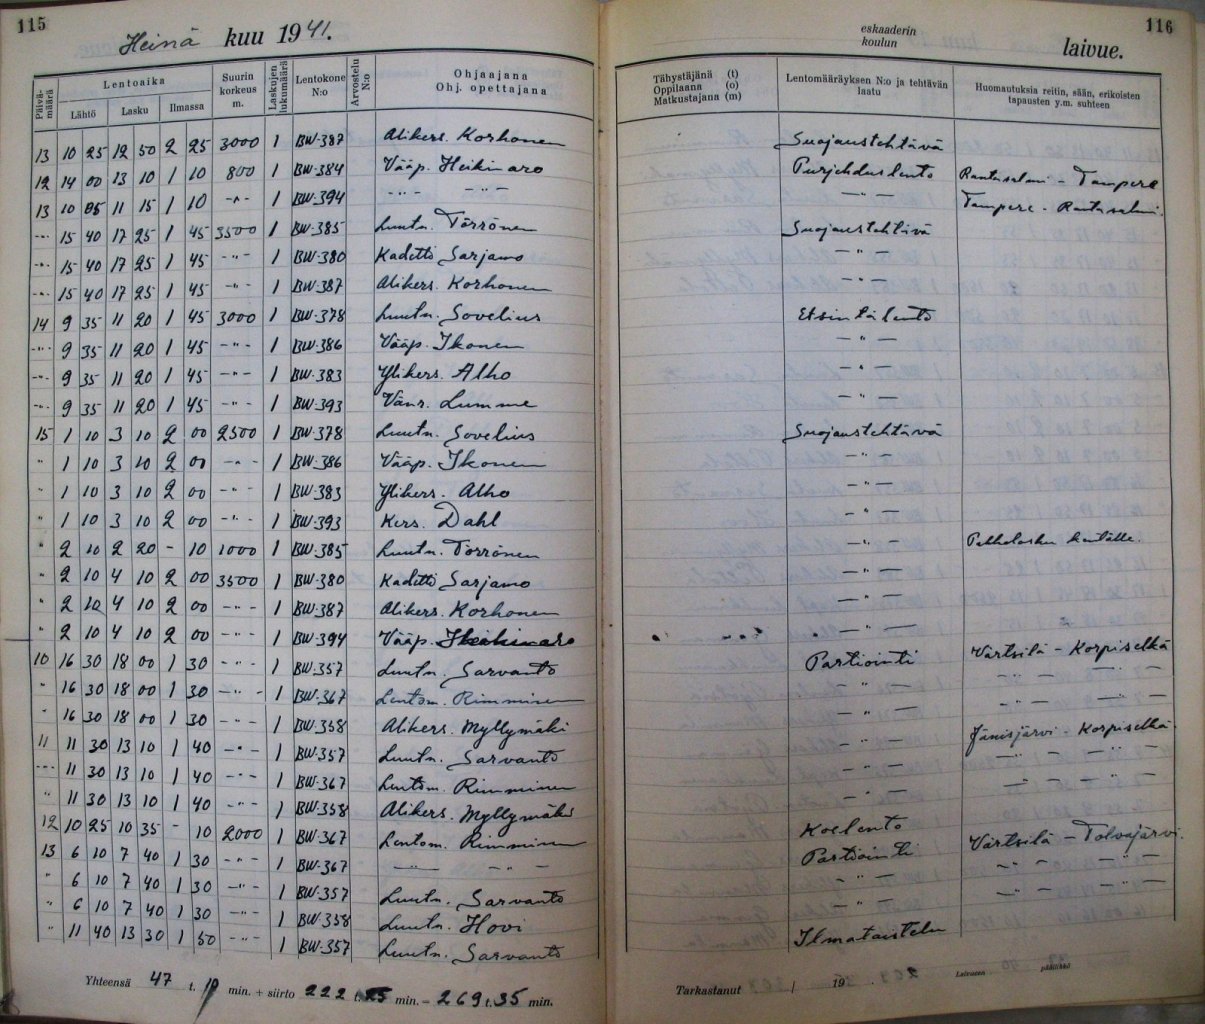 115
Heinä kuu 1941.
Päivämäärä | Lentoaika | Lähtö | Lasku | Ilmassa | Suurin korkeus m. | Laskujen lukumäärä | Lentokone N:o | Arvostelu N:o | Ohjaajana Ohj. opettajana
13 10 25 12 50 2 25 3000 1 BW-387 Alikers. Korhonen
12 14 00 13 10 1 10 800 1 BW-384 Vääp. Heikinaro
13 10 05 11 15 1 10 -"- 1 BW-394 -"- -"-
-"- 15 40 17 25 1 45 3500 1 BW-385 Luutn. Törrönen
-"- 15 40 17 25 1 45 -"- 1 BW-380 Kadetti Sarjamo
-"- 15 40 17 25 1 45 -"- 1 BW-387 Alikers. Korhonen
14 9 35 11 20 1 45 3000 1 BW-378 Luutn. Sovelius
-"- 9 35 11 20 1 45 -"- 1 BW-386 Vääp. Ikonen
-"- 9 35 11 20 1 45 -"- 1 BW-383 Ylikers. Alho
-"- 9 35 11 20 1 45 -"- 1 BW-393 Vänr. Lumme
15 1 10 3 10 2 00 2500 1 BW-378 Luutn. Sovelius
" 1 10 3 10 2 00 -"- 1 BW-386 Vääp. Ikonen
" 1 10 3 10 2 00 -"- 1 BW-383 Ylikers. Alho
" 1 10 3 10 2 00 -"- 1 BW-393 Kers. Dahl
" 2 10 2 20 - 10 1000 1 BW-385 Luutn. Törrönen
" 2 10 4 10 2 00 3500 1 BW-380 Kadetti Sarjamo
" 2 10 4 10 2 00 -"- 1 BW-387 Alikers. Korhonen
" 2 10 4 10 2 00 -"- 1 BW-394 Vääp. Heikinaro
10 16 30 18 00 1 30 -"- 1 BW-357 Luutn. Sarvanto
" 16 30 18 00 1 30 -"- 1 BW-367 Lentom. Rimminen
" 16 30 18 00 1 30 -"- 1 BW-358 Alikers. Myllymäki
11 11 30 13 10 1 40 -"- 1 BW-357 Luutn. Sarvanto
-"- 11 30 13 10 1 40 -"- 1 BW-367 Lentom. Rimminen
" 11 30 13 10 1 40 -"- 1 BW-358 Alikers. Myllymäki
12 10 25 10 35 - 10 2000 1 BW-367 Lentom. Rimminen
13 6 10 7 40 1 30 -"- 1 BW-367 -"- -"-
" 6 10 7 40 1 30 -"- 1 BW-357 Luutn. Sarvanto
" 6 10 7 40 1 30 -"- 1 BW-358 Luutn. Hovi
" 11 40 13 30 1 50 -"- 1 BW-357 Luutn. Sarvanto
Yhteensä 47 t. 10 min. + siirto 222 t. 25 min. = 269 t. 35 min.
116
eskaaderin
koulun
laivue.
Tähystäjänä (t) Oppilaana (o) Matkustajana (m) | Lentomääräyksen N:o ja tehtävän laatu | Huomautuksia reitin, sään, erikoisten tapausten y.m. suhteen
Suojaustehtävä
Purjehduslento Rantasalmi - Tampere
-"- Tampere - Rantasalmi.
Suojaustehtävä
-"-
-"-
Etsintälento
-"-
-"-
-"-
Suojaustehtävä
-"-
-"-
-"-
-"- Pakkolasku kentälle.
-"-
-"-
-"-
Partiointi Värtsilä - Korpiselkä
-"- -"- -"-
-"- -"- -"-
-"- Jänisjärvi - Korpiselkä
-"- -"- -"-
-"- -"- -"-
Koelento
Partiointi Värtsilä - Tolvajärvi.
-"- -"- -"-
-"- -"- -"-
Ilmataistelu
Tarkastanut / 19 .
Laivueen päällikkö